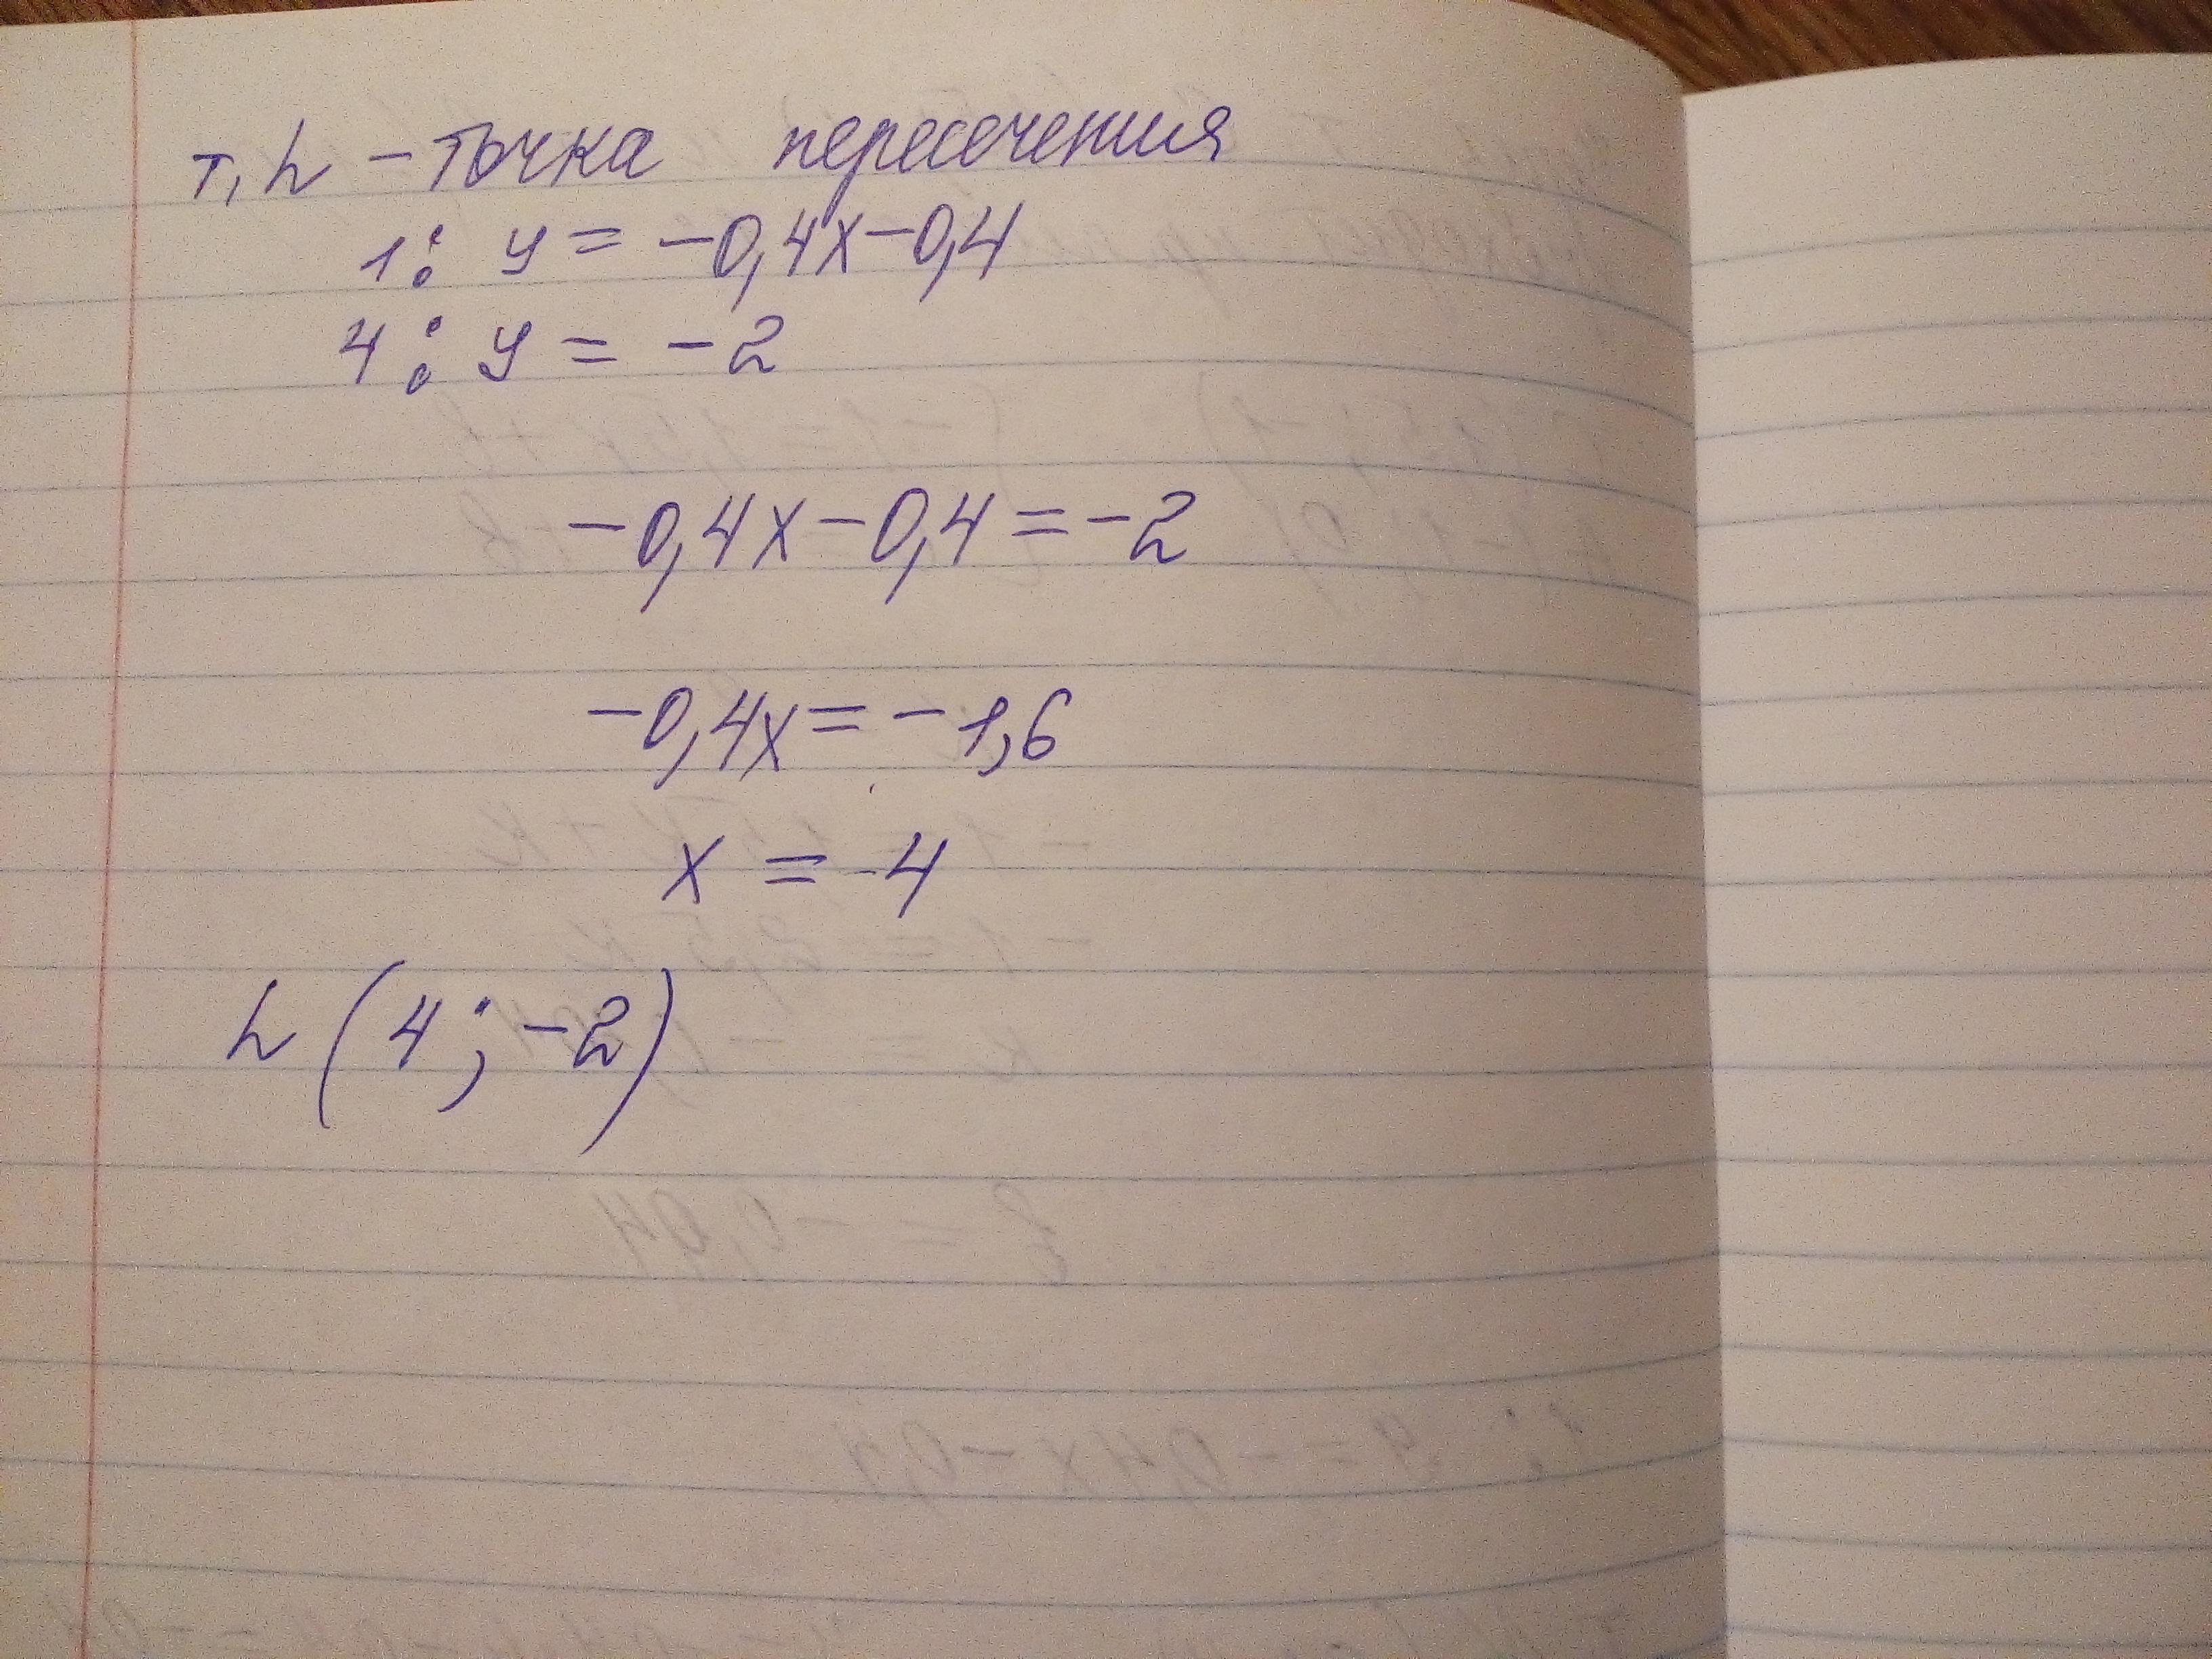 т, h – точка пересечения
1: y = -0,4x-0,4
4: y = -2
-0,4x-0,4=-2
-0,4x=-1,6
x = 4
h (4; -2)